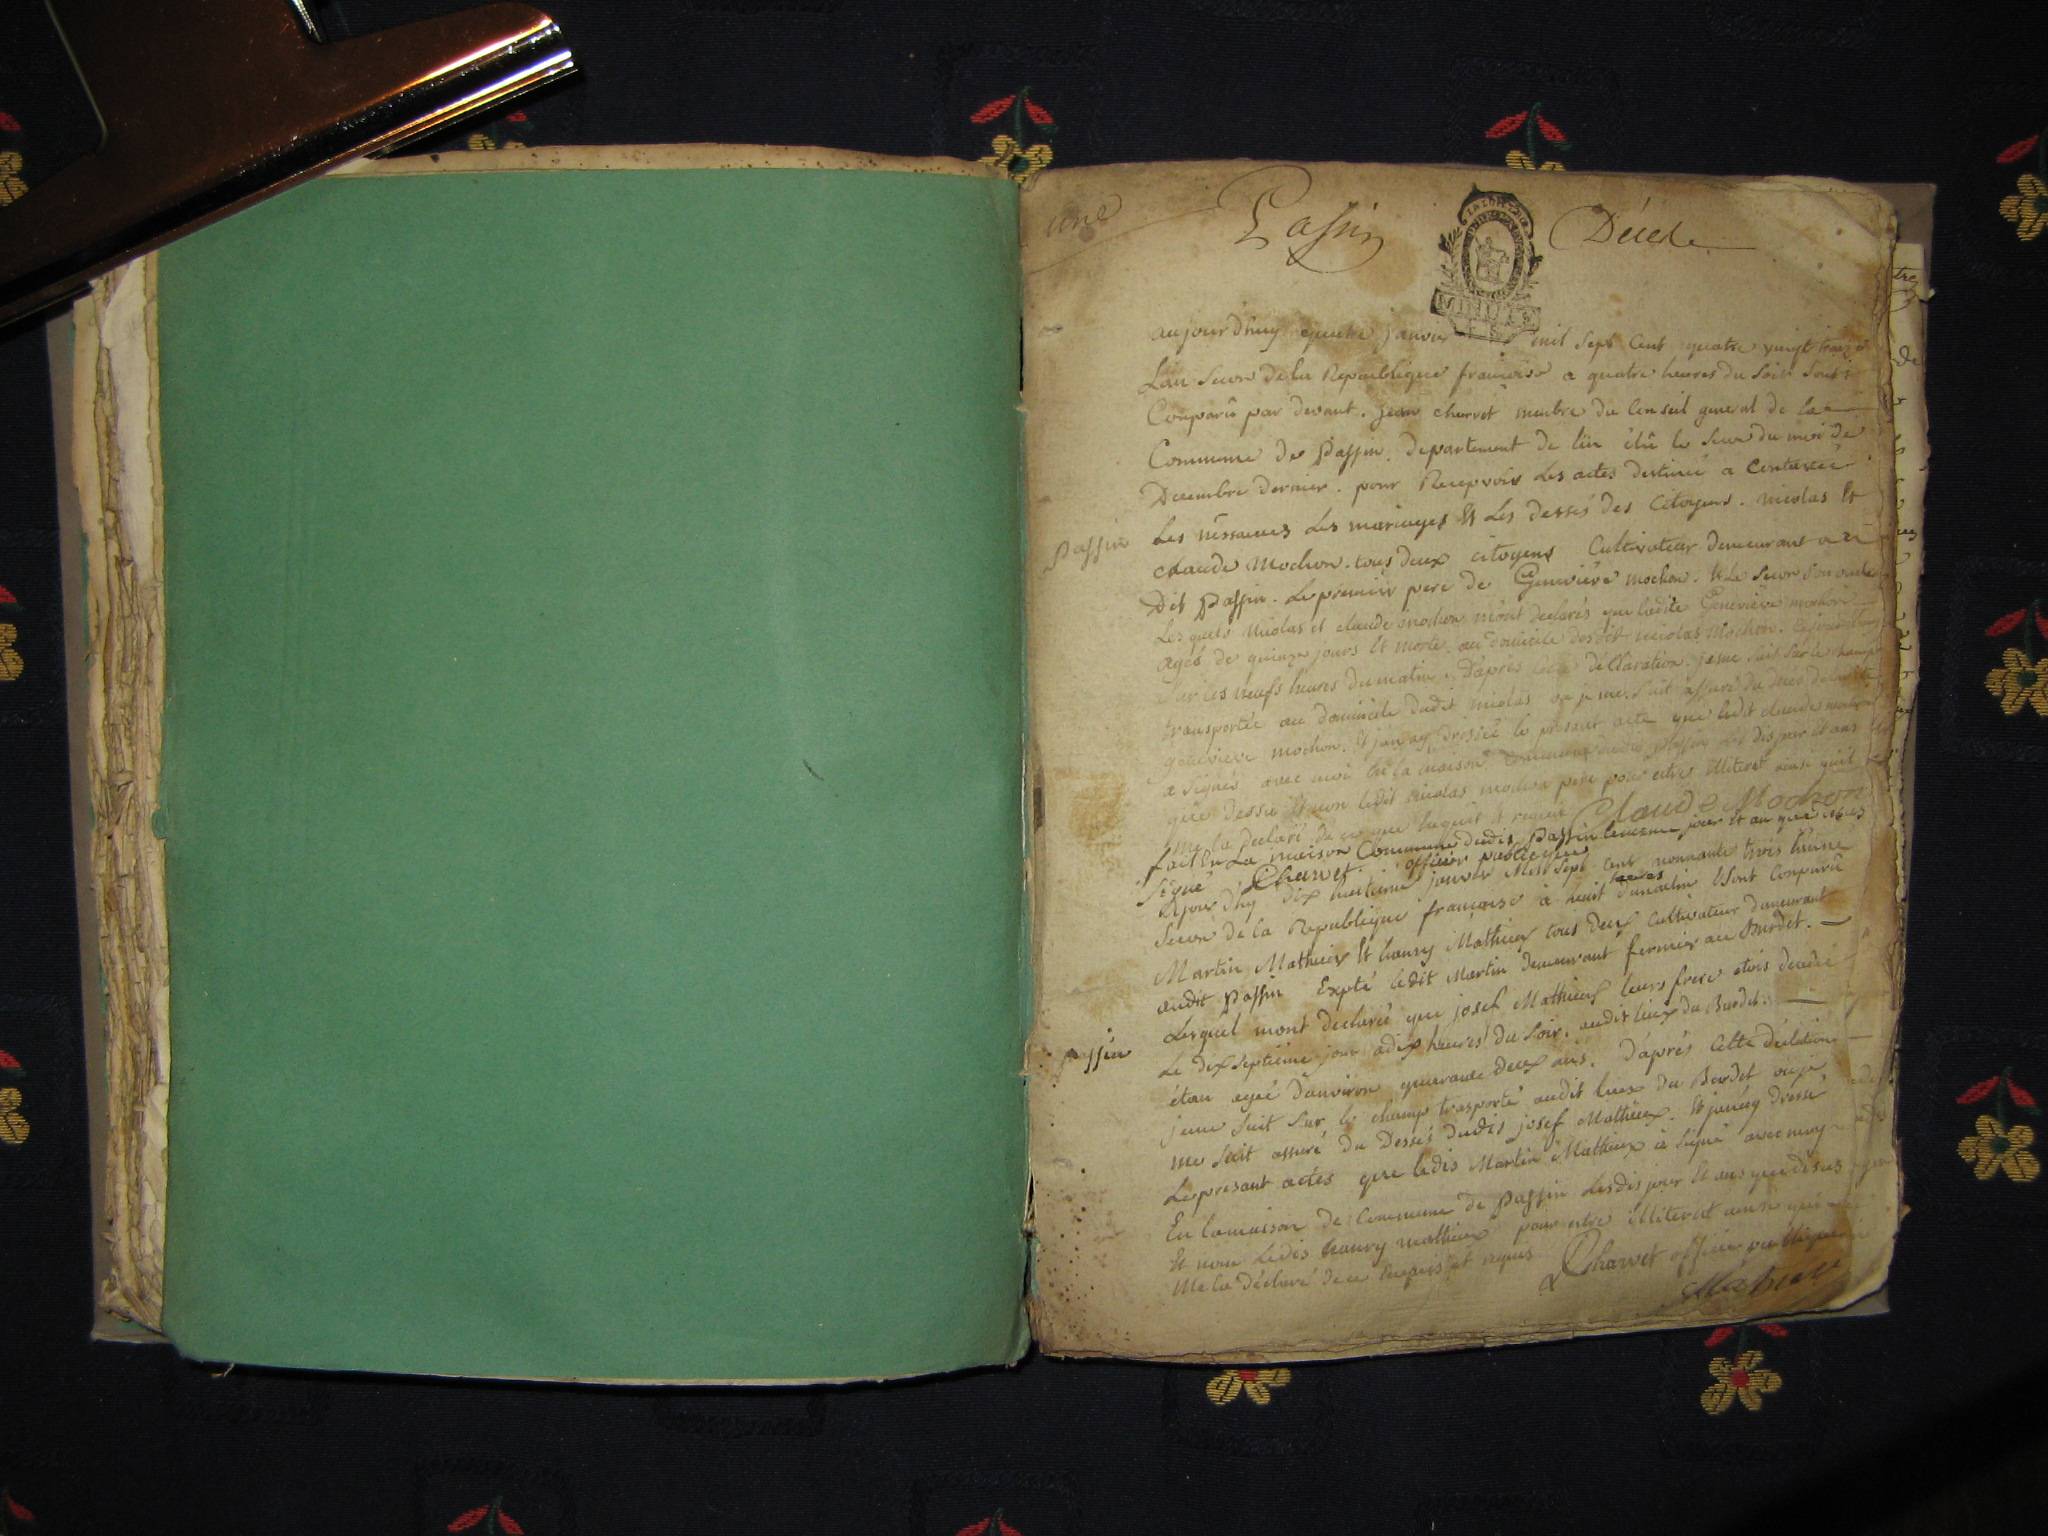 une Passin Décede
aujourd'huy quatre janvier mil Sept Cent quatre vingt treize
Lan Secon de la Republique françoise a quatre heures du Soir Sont
Conparû par devant. jean charvet menbre du Conseil general de la
Commune de Passin. departement de lin élû le Seize du moi de
Decembre dernier. pour Recepvoir Les actes destiné a
Les Les mariages Et Les dessés des Citoyens. nicolas Et
Passin
claude Mochon. tous deux citoyens Cultivateur demeurant
Dit Passin. Le premier pere de Genevieve mochon. Et Le Secon Son
Les quels Nicolas et claude mochon mont declarés que ladite Genevieve mochon
agés de quinze jours Et morte. au domicile dudit nicolas Mochon.
Sur les neufs heures du matin. D'aprés cette déClaration. je me Suit Sur le champ
transportée au domicile dudit nicolas ou je me Suit assuré du de ladite
genevieve mochon. Et jan ay dressée le present acte que ledit claude mochon
a Signés avec moi En la maison Commune dudit Passin Les dis jour Et ans
que Dessu Et non ledit nicolas mochon pere pour etre illiteret ainsi quil
me la declaré de ce que Enquit et requit Claude Mochon
fait En La maison Commune dudis Passin jour et an que
Signé Charvet. officier publique
dix huitieme janvier Mil Sept Cent nonnante trois Laine
heures
Secon de la Republique françoise à huit du matin Sont Conparû
Martin Mathieux Et haury Mathieux tous deux Cultivateur demeurant
audit Passin Expté ledit Martin demeurant fermier au Burdet.
Lesquel mont declaré que josef Mathieux leurs frere etois decedé
Passin
Le dix Septième jour à dix heures du Soir. audit lieux du Burdet.
étan agé d'anviron quarante deux ans. D'aprés Cette déclation
jeme Suit Sur le champ trasporté audit lieux du Burdet ou je
me Suit assuré du Dessés dudis josef Mathieux. Et janay dressé
Le presant actes que ledis Martin Mathieux à Signé avec moy
En lamaison de Commune de Passin Lesdis jour Et ans que desus
Et non Ledis haury mathieux pour etre illiterat ainsi que
Me la déclaré de ce Enquis et requis Charvet officier publique
Mathieux